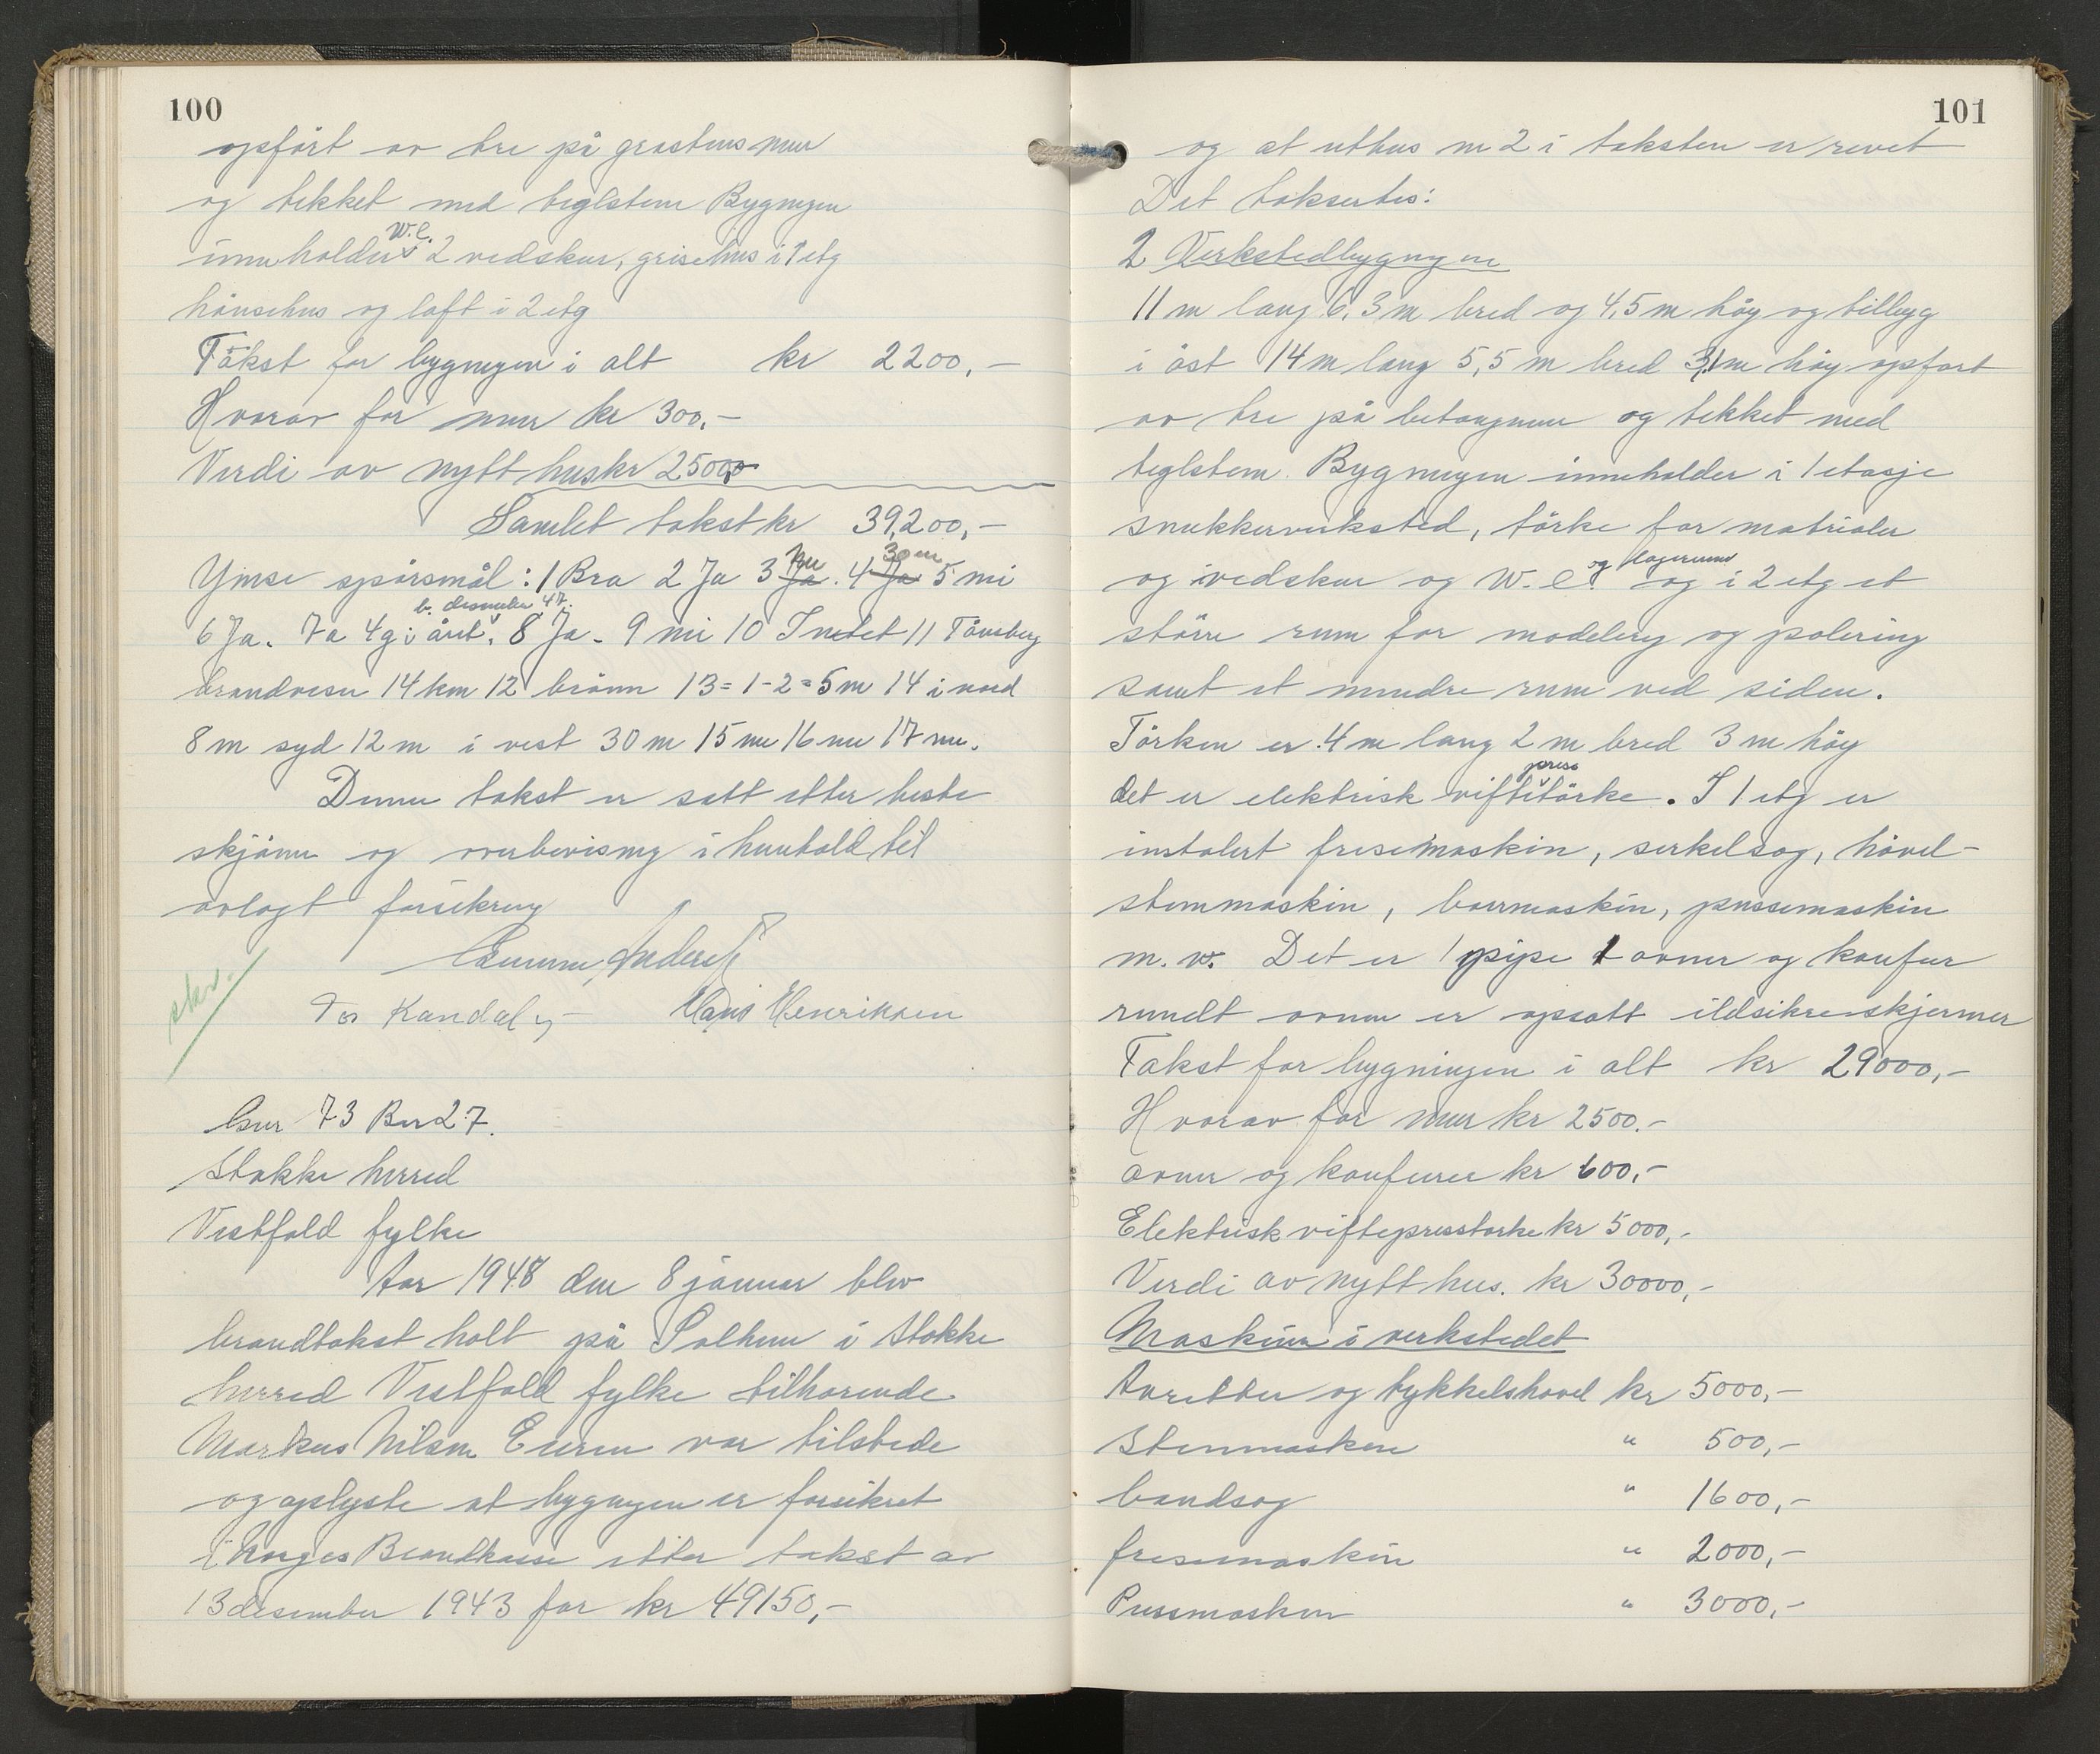 100
opfört av tre på grastens mur
og tekket med teglstene Bygnigen
W.C.
innholder 2 vedskur, grisehus i 1 etg
hönsehus og loft i 2 etg
Takst for bygnigen i alt kr 2200,-
Hvorav for mur kr 300,-
Verdi av nytt hus kr 2500,-
Samlet takst kr 39,200,-
nei 30 m
Ymse spörsmål: 1 Bra 2 Ja 3 Ja. 4 Ja 5 nei
b. desember 47.
6 Ja. 7a 4 g i året. 8 Ja. 9 nei 10 Intet 11 Tönsberg
brandvesen 14 km 12 brönn 13=1-2=5m 14 i nord
8 m syd 12 m i vest 30 m 15 nei 16 nei 17 nei.
Denne takst er satt etter beste
skjönn og overbevisnig i henhold til
avlagt forsikring
Gunnar Anders
Tor Kandal Hans Henriksen
skr.
Gnr 73 Bnr 27.
Stokke herred
Vestfold fylke
Aar 1948 den 8 januar blev
brandtakst holt på Solheim i Stokke
herred Vestfold fylke tilhorende
Markus Nilsen Eieren var tilstede
og oplyste at bygnigen er forsikret
i Norges Brandkasse etter takst av
13 desember 1943 for kr 49150,-
101
og at uthus m 2 i taksten er revet
Det taksertes:
2 Verkstedbygnigen
11 m lang 6,3 m bred og 4,5 m höy og tilbyg
i öst 14 m lang 5,5 m bred 3,1 m höy opfört
av tre på betongmur og tekket med
teglsten. Bygnigen inneholder i 1 etasje
snekkerverksted, törke for matrialer
og lagerum
og vedskur og W.C. og i 2 etg et
större rum for modelerig og polering
samt et mindre rum ved siden.
Törken er 4 m lang 2 m bred 3 m höy
press
det er elektrisk viftetörke. I 1 etg er
instalert fresemaskin, serkelsag, hövel-
stemmaskin, boermaskin, pussemaskin
m.v. Det er 1 pipe 1 ovner og komfur
rundt ovnen er opsatt ildsikre skjermer
Takst for bygningen i alt kr 29000,-
Hvorav for mur kr 2500.-
ovner og komfurer kr 600,-
Elektrisk viftepresstörke kr 5000,-
Verdi av nytt hus. kr 30000,-
Maskiner i verkstedet
Avretter og tykkelshovel kr 5000,-
Stemmaskin " 500,-
bandsag " 1600,-
fresemaskin " 2000,-
Pussmaskin " 3000,-